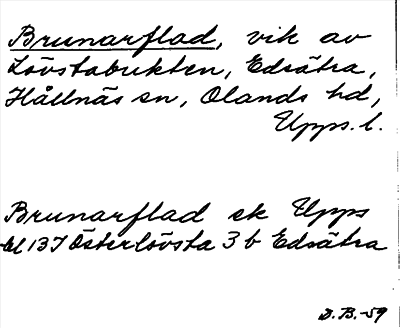 Brunarflad, vik av
Lövstabukten, Edsätra,
Hållnäs sn, Olands hd,
Upps. l.
Brunarflad ek Upps
bl 13I Österlövsta 3 b Edsätra
D. B. -59